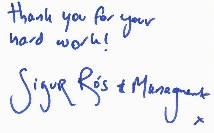 Thank you for your
hard work!
Sigur Rós & Managment
x